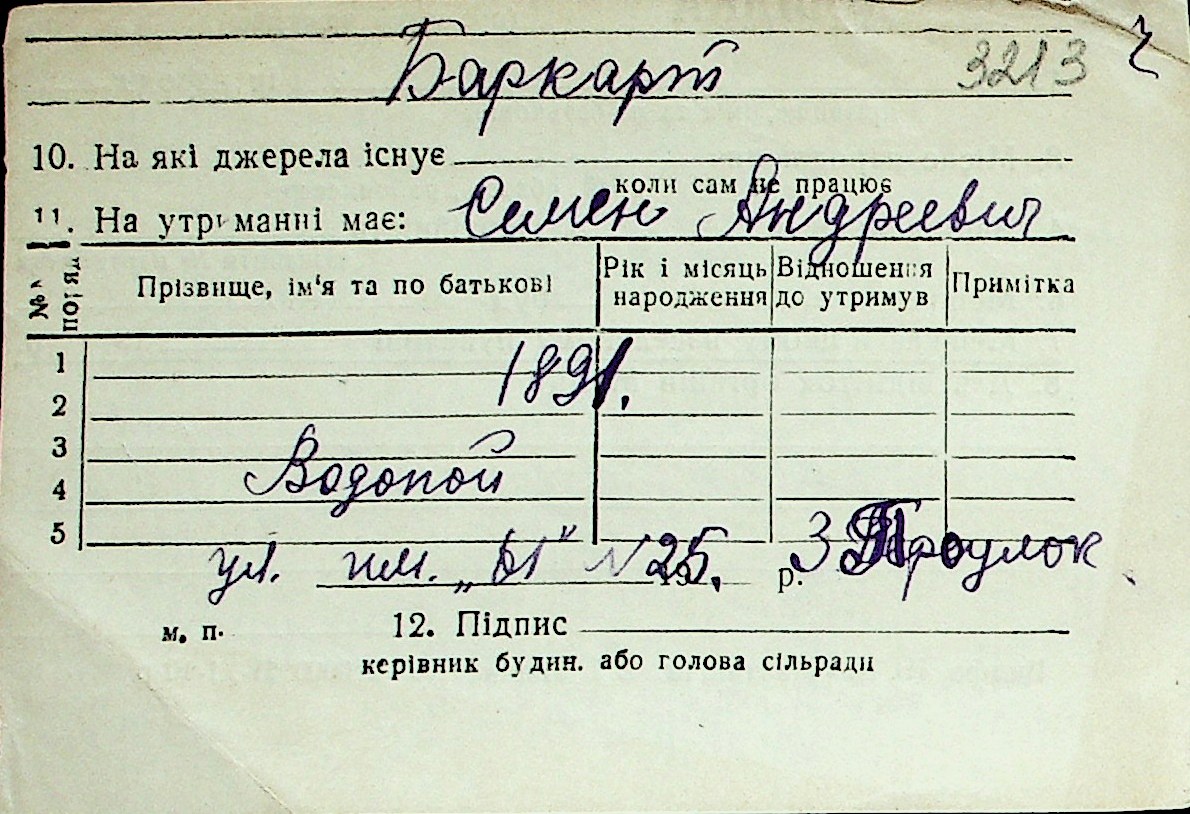 Баркарт 3213
10. На які джерела існує
коли сам не працює
11. На утриманні має: Семен Андреевич
№ порядк Прізвище, ім'я та по батькові Рік і місяць народження Відношення до утримув Примітка
1
1891.
2
3
Водопой
4
5
ул. пл. № 25. р. 3 Проулок
м. п. 12. Підпис
керівник будин. або голова сільради